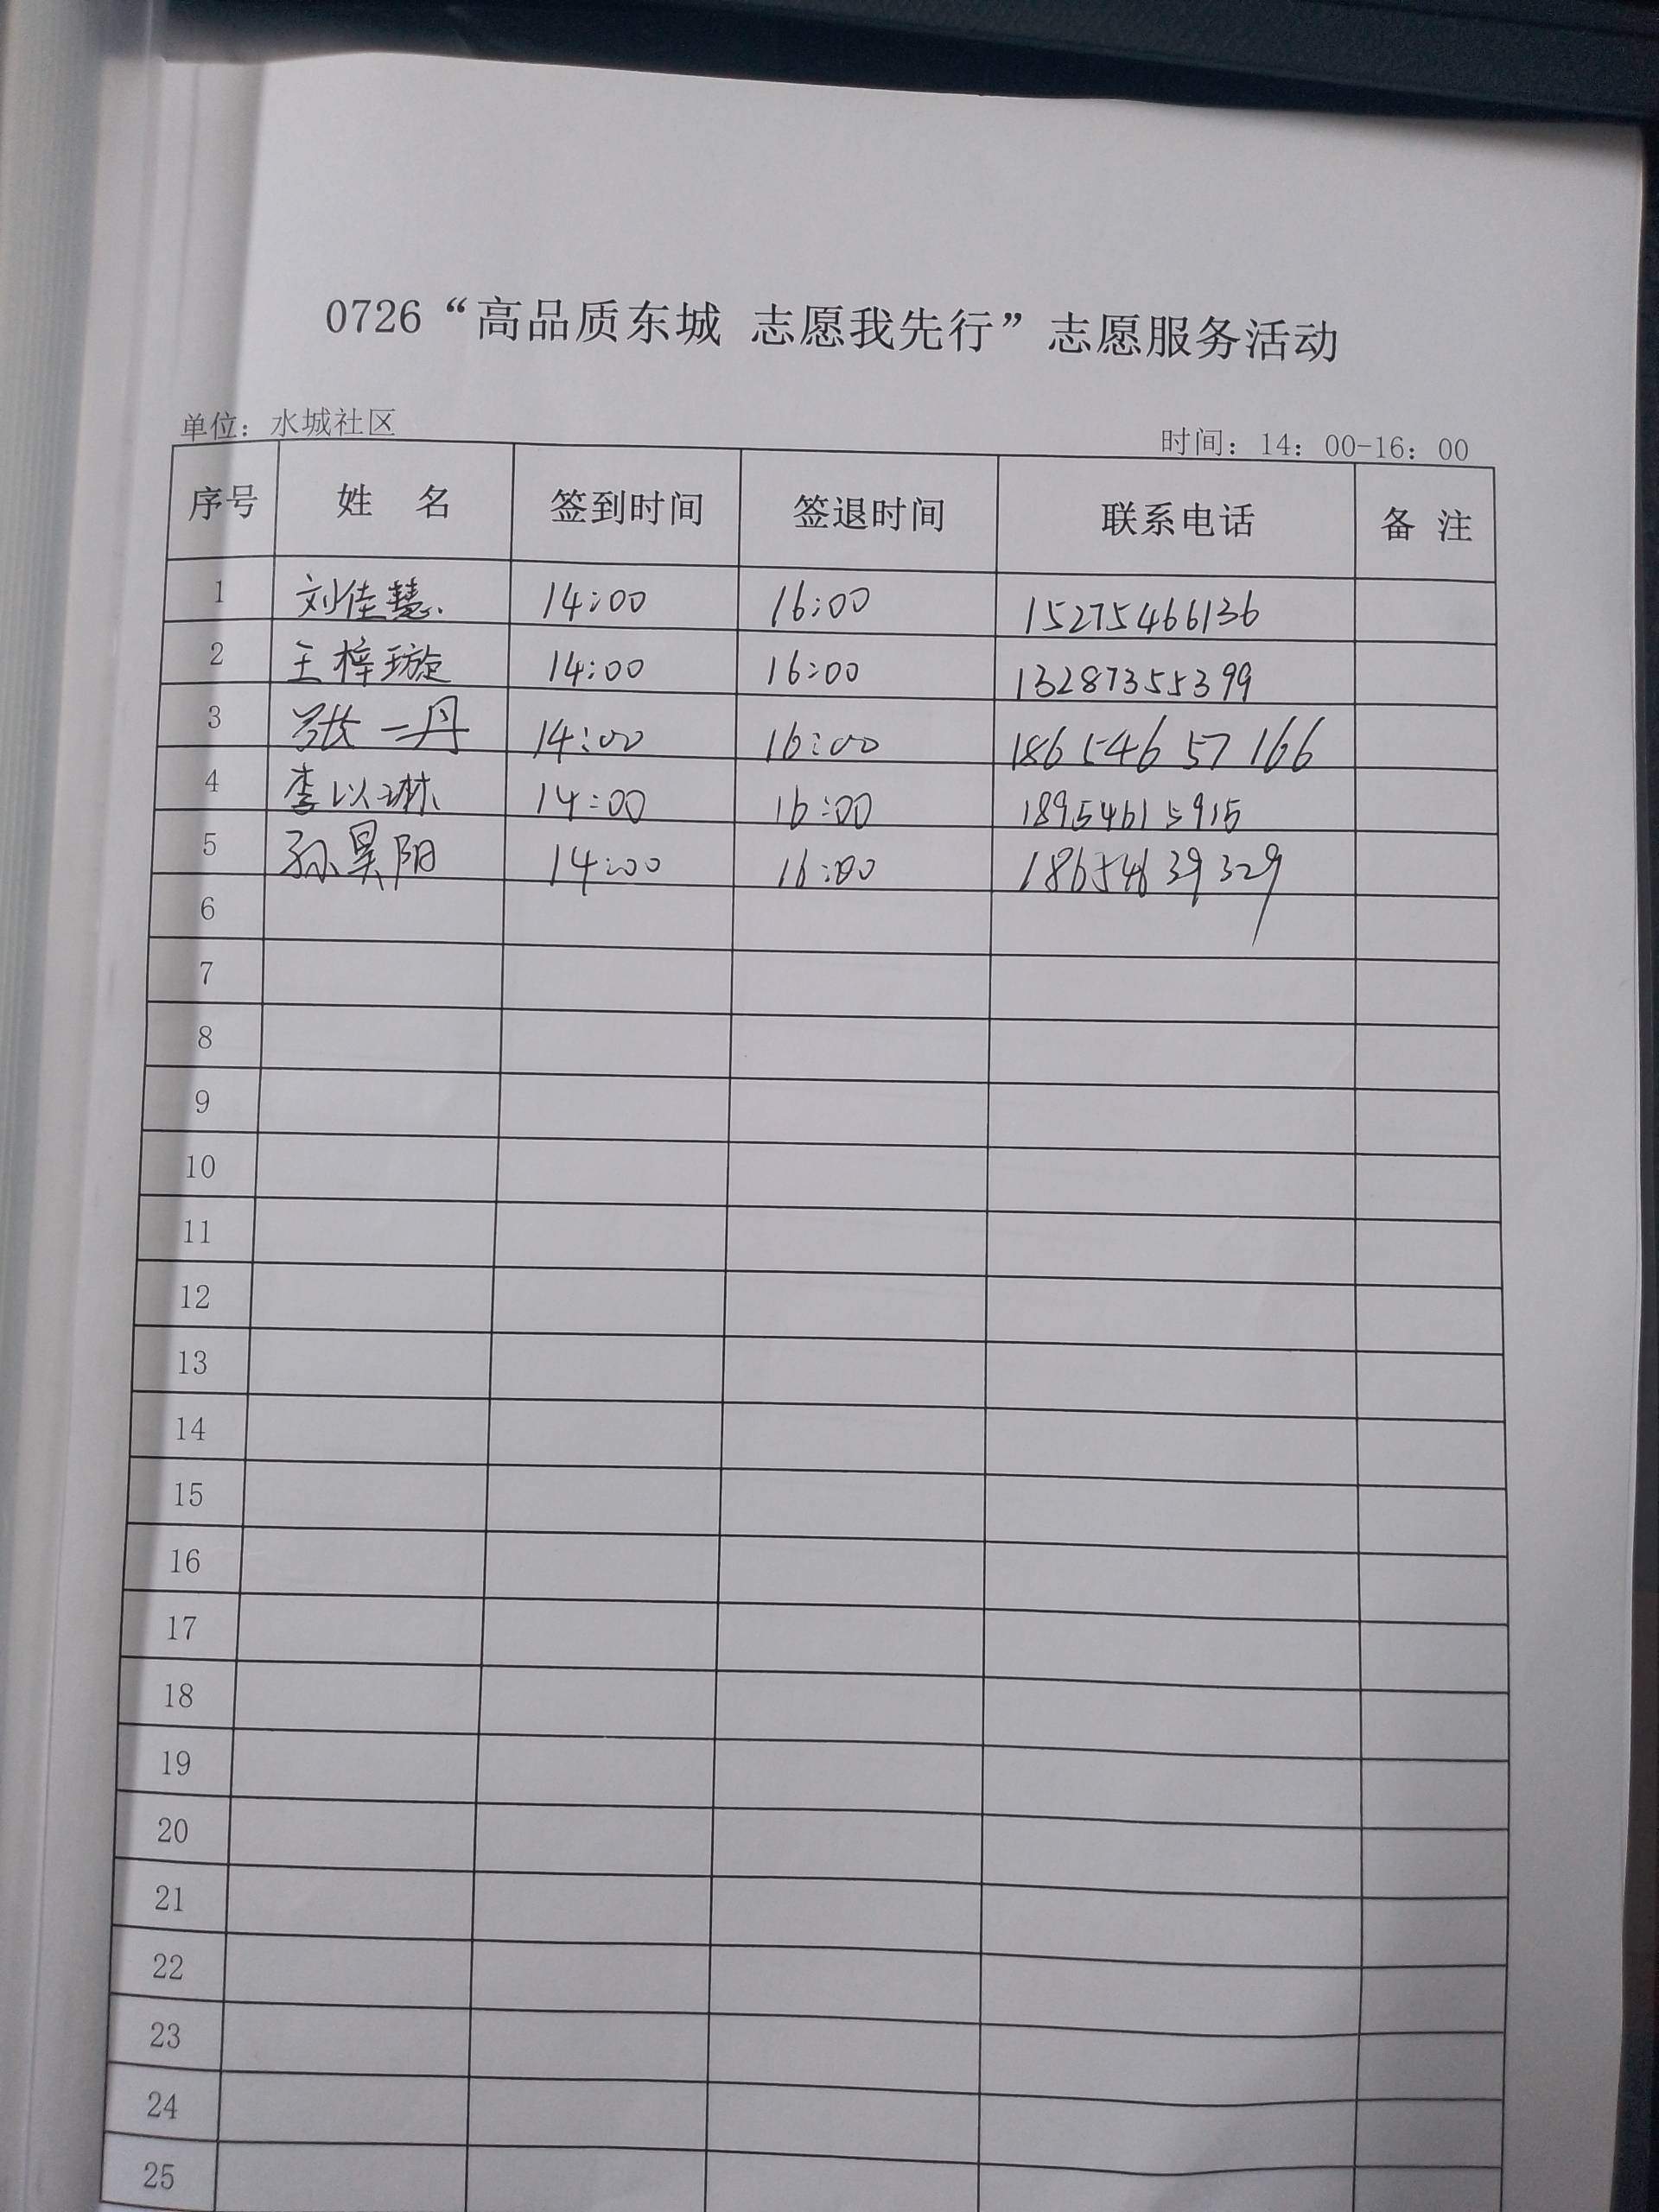 0726“高品质东城 志愿我先行”志愿服务活动
单位：水城社区 时间：14：00-16：00
序号 姓 名 签到时间 签退时间 联系电话 备 注
1 刘佳慧 14:00 16:00 15275466136
2 王梓璇 14:00 16:00 13287355399
3 张一丹 14:00 16:00 18654657166
4 李以琳 14:00 16:00 18954615915
5 孙昊阳 14:00 16:00 18654639329
6
7
8
9
10
11
12
13
14
15
16
17
18
19
20
21
22
23
24
25